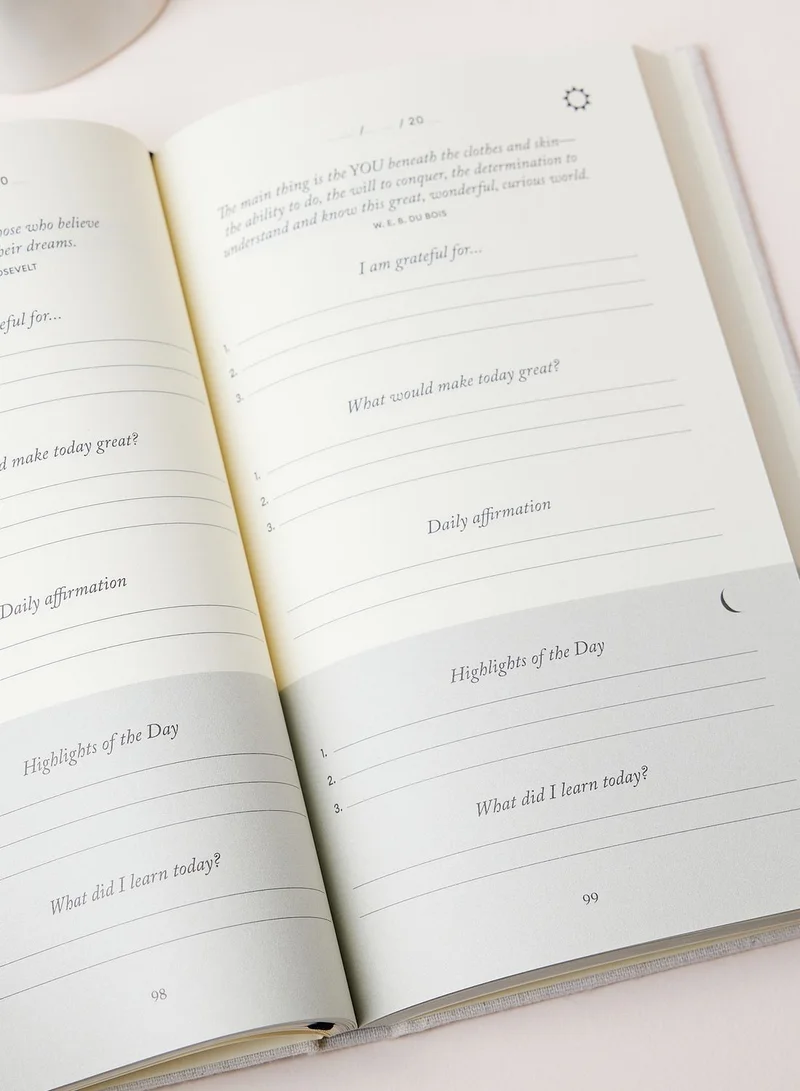 0
hose who believe
heir dreams.
OSEVELT
eful for...
d make today great?
Daily affirmation
Highlights of the Day
What did I learn today?
98
/ / 20
The main thing is the YOU beneath the clothes and skin—
the ability to do, the will to conquer, the determination to
understand and know this great, wonderful, curious world.
W. E. B. DU BOIS
I am grateful for...
1.
2.
3.
What would make today great?
1.
2.
3.
Daily affirmation
Highlights of the Day
1.
2.
3.
What did I learn today?
99